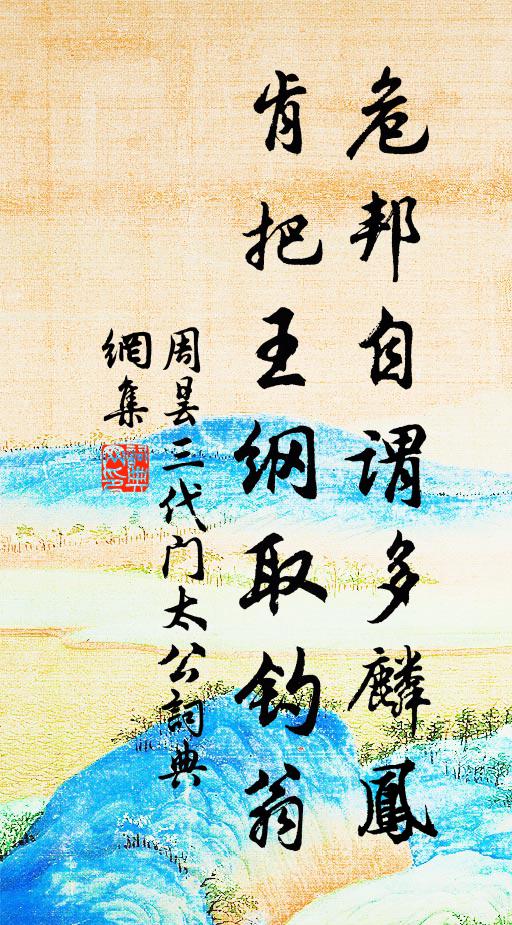 危邦自謂多麟鳳
肯把王纲取钓翁
周昙三代门太公詞典
網集